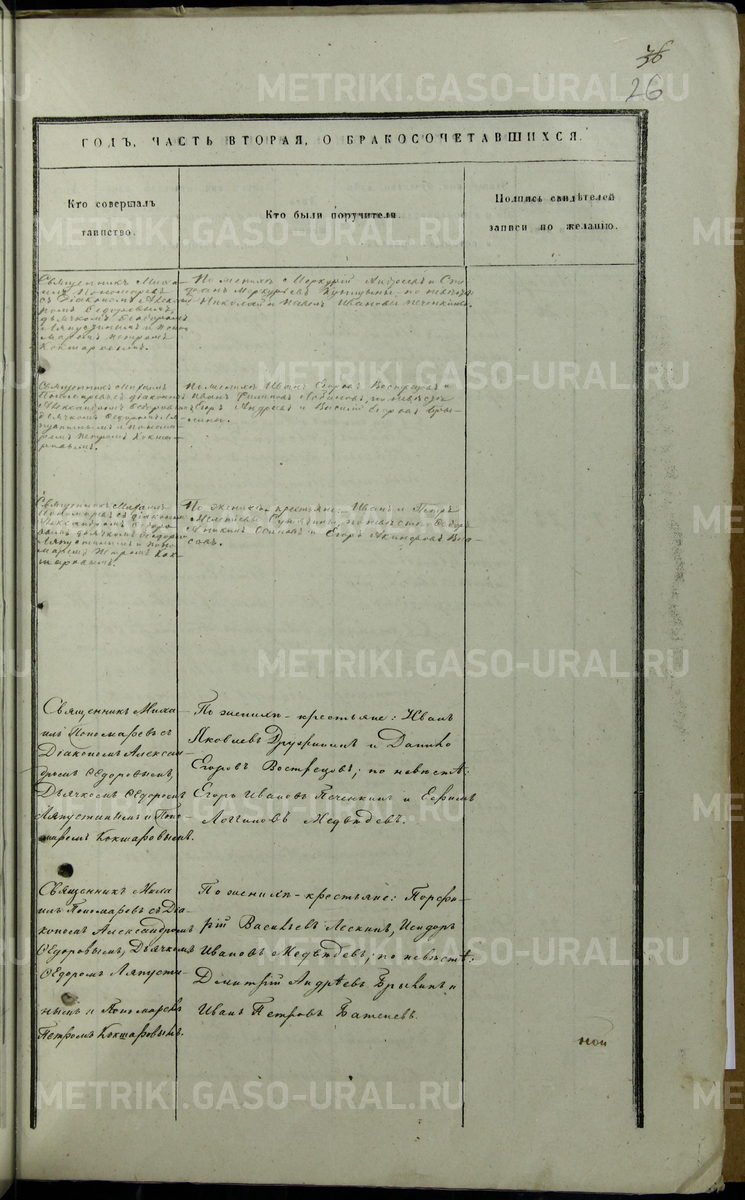 36
26
ГОДЪ, ЧАСТЬ ВТОРАЯ, О БРАКОСОЧЕТАВШИХСЯ.
Кто совершалъ
таинство.
Кто были поручители.
Подпись свидѣтелей
записи по желанію.
Священникъ Миха-
илъ Пономаревъ
съ Діакономъ Алексан
ромъ Ѳедоровымъ,
дьячкомъ Ѳеодоромъ
Ляпустинымъ и Поно-
маремъ Петромъ
Кокшаровымъ.
По женихѣ Меркурій и Сте
панъ Меркурьевъ по невѣстѣ
Николай и Павелъ Ивановы Печенкины.
Священникъ Михаилъ
Пономаревъ съ діакономъ
Александромъ Ѳедоровымъ
дьячкомъ Ѳедоромъ Ля-
пустинымъ и понома-
ремъ Петромъ Кокша-
ровымъ.
По женихѣ Иванъ Егоровъ Вострецовъ и
Иванъ по невѣстѣ
Егоръ Андреевъ и Василій Егоровъ Бры-
Священникъ Михаилъ
Пономаревъ съ діакономъ
Александромъ Ѳедоро
вымъ дьячкомъ Ѳедоромъ
Ляпустинымъ и Поно-
маремъ Петромъ Кок-
шаровымъ.
По женихѣ крестьяне: Иванъ и Петръ
по невѣстѣ Ѳедоръ
и Егоръ Вла-
совъ.
Священникъ Миха-
илъ Пономаревъ съ
Діакономъ Алексан-
дромъ Ѳедоровымъ,
Дьячкомъ Ѳедоромъ
Ляпустинымъ и Поно-
маремъ Кокшаровымъ.
По женихѣ-крестьяне: Иванъ
Яковлевъ Дружининъ и Данило
Егоровъ Вострецовъ; по невѣстѣ:
Егоръ Ивановъ Печенкинъ и Ефимъ
Логгиновъ Медвѣдевъ.
Священникъ Миха-
илъ Пономаревъ съ Діа-
кономъ Александромъ
Ѳедоровымъ, Дьячкомъ
Ѳедоромъ Ляпусти-
нымъ и Пономаремъ
Петромъ Кокшаровымъ.
По женихѣ-крестьяне: Порфи-
рій Васильевъ Лескинъ, Исидоръ
Ивановъ Медвѣдевъ; по невѣстѣ:
Димитрій Андрѣевъ Брывинъ и
Иванъ Петровъ Баженевъ.
ной
METRIKI.GASO-URAL.RU